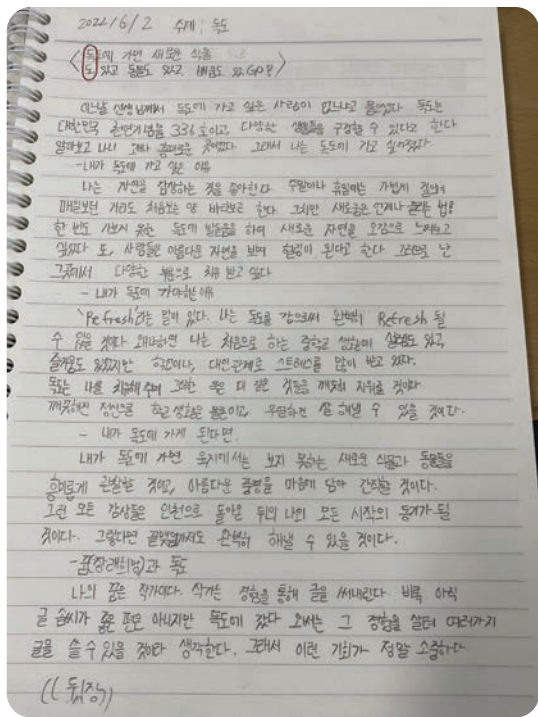 2022/6/2 주제: 독도
<독도에 가면 새로운 식물
도 있고 동물도 있고, 배움도 있GO!>
어느날 선생님께서 독도에 가고 싶은 사람이 없냐고 물으셨다. 독도는
대한민국 천연기념물 336호이고, 다양한 생물들을 구경할 수 있다고 한다.
알아보고 나니 꽤나 흥미로운 곳이었다. 그래서 나는 독도에 가고 싶어졌다.
- 내가 독도에 가고 싶은 이유
나는 자연을 감상하는 것을 좋아한다. 주말이나 휴일에는 가볍게
매일보던 거리도 처음보는 양 바라보곤 한다. 그치만 새로움은 언제나 법!
한 번도 가보지 못한 독도에 발돋움을 하여 새로운 자연을 오감으로 느껴보고
싶었다. 또, 사람들은 아름다운 자연을 보며 힐링이 된다고 한다. 그러므로 난
그곳에서 다양한 부분으로 치유 받고 싶다.
- 내가 독도에 가야하는 이유
'Refresh'라는 말이 있다. 나는 독도를 감으로써 완벽히 Refresh 될
수 있을 것이다. 왜냐하면 나는 처음으로 하는 중학교 생활에 설렘도 있고
즐거움도 있었지만 학업이나, 대인관계로 스트레스를 많이 받고 있다.
독도는 나를 치유해주며 그러한 짙은 것들을 깨끗히 지워줄 것이다.
깨끗해진 정신으로 학교 생활은 물론이고, 무엇하든 잘 해낼 수 있을 것이다.
- 내가 독도에 가게 된다면.
내가 독도에 가면 육지에서는 보지 못하는 새로운 식물과 동물들을
흥미롭게 관찰할 것이고, 아름다운 풍경을 마음에 담아 간직할 것이다.
그런 모든 감상들은 인천으로 돌아온 뒤의 나의 모든 시작의 동기가 될
것이다. 그렇다면 끝맺음까지도 완벽히 해낼 수 있을 것이다.
- 꿈(장래희망)과 독도
나의 꿈은 작가이다. 작가는 경험을 통해 글을 써내린다. 비록 아직
글 솜씨가 좋은 편은 아니지만 독도에 갔다 와서는 그 경험을 살려 여러가지
글을 쓸 수 있을 것이라 생각한다. 그래서 이런 기회가 정말 소중하다
((뒷장))